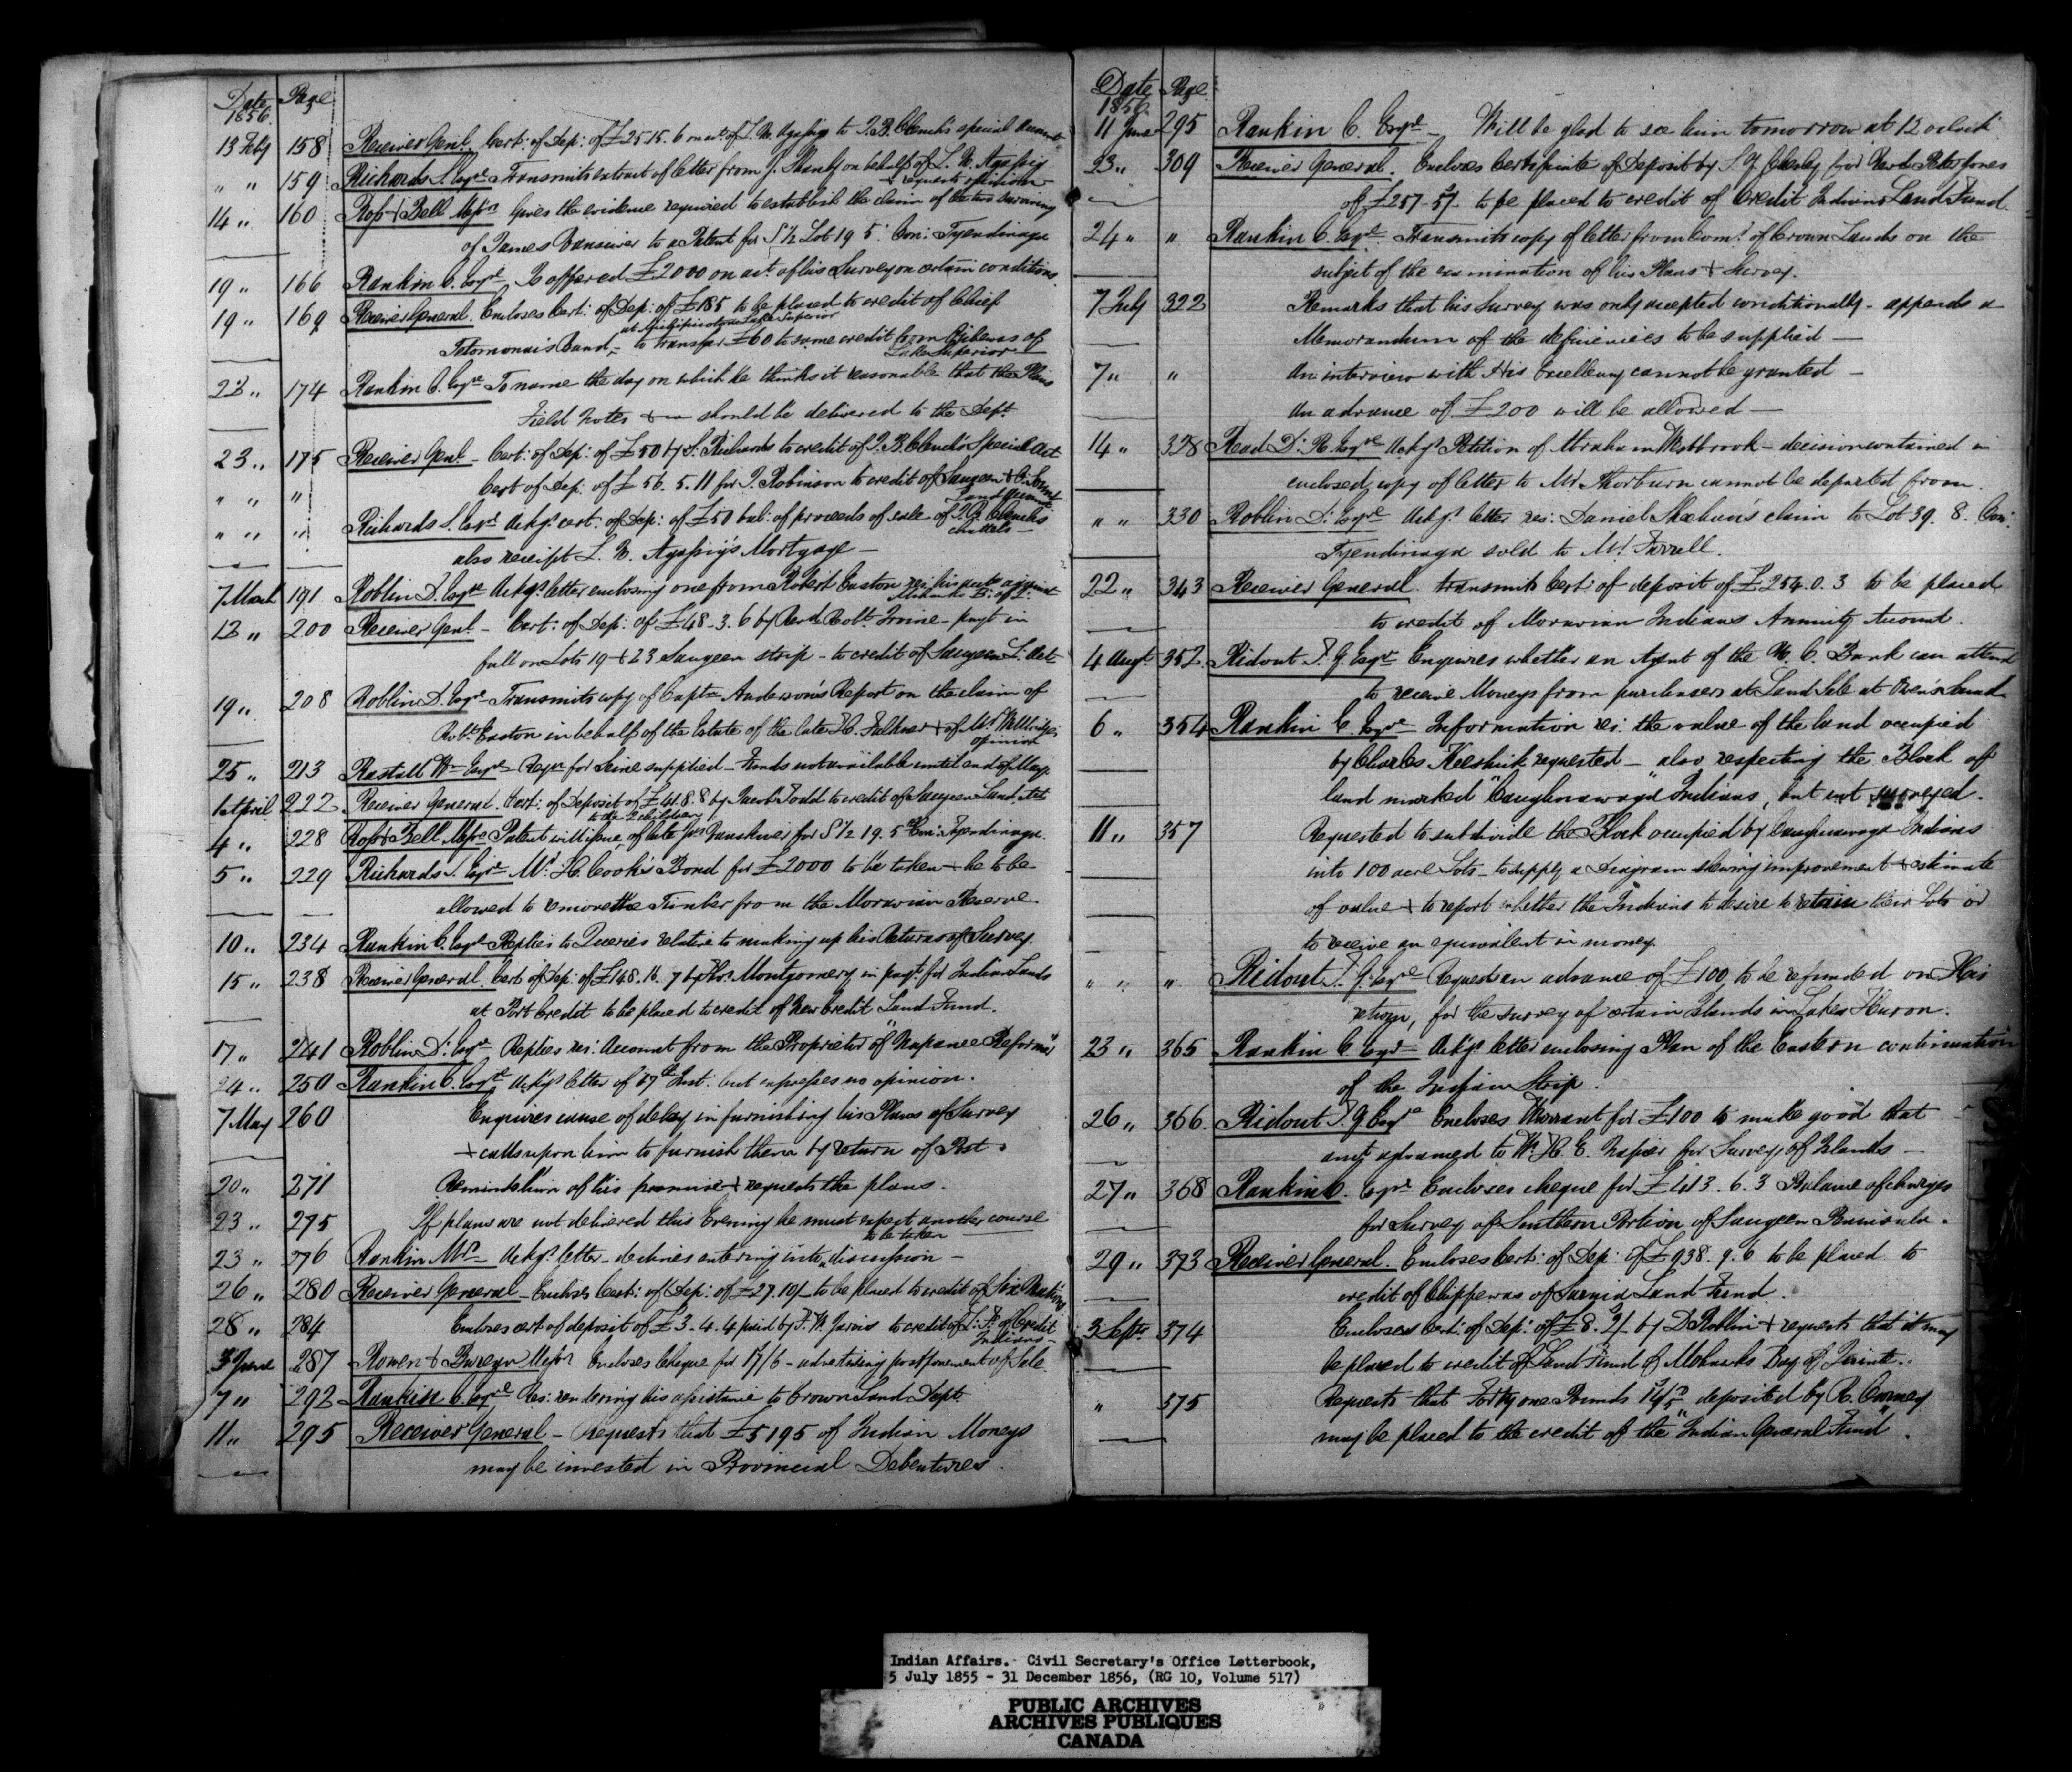 Date Page
1856
13 Feby 158 Receiver Genl. Cert: of Dep: of £25.15.6 on act of L. N. Agassiz to J. B. Clench's special Account
" " 159 Richards S. Esqre Transmits extract of letter from J. Shanly on behalf of L. N. Agassiz
& requests opinion
14 " 160 Ross & Bell Messrs Gives the evidence required to establish the claim of the two surviving
of James Vansiver to a Patent for S ½ Lot 19 5 Con: Tyendinaga
19 " 166 Rankin C. Esqre Is offered £2000 on act of his Survey on certain conditions
19 " 169 Receiver General. Encloses Cert: of Dep: of £185 to be placed to credit of Chief
at Michipicoton Lake Superior
Totomonais Band, – to transfer £60 to same credit from Ojibewas of
Lake Superior
23 " 174 Rankin C. Esqre To name the day on which he thinks it reasonable that the Plans
Field Notes &c should be delivered to the Dept.
23 " 175 Receiver Genl – Cert: of Dep: of £50 by S. Richards to credit of J. B. Clench's Special Act
" " " Cert of Dep: of £56.5.11 for J. Robinson to credit of Saugeen & O. Sound
Land fund
" " " Richards S. Esqre Ackgs cert: of Dep: of £50 bal: of proceeds of sale of J. B. Clench's
chattels –
also receipt L. N. Agassiz's Mortgage –
7 March 191 Roblin D. Esqre Ackgs letter enclosing one from Robert Easton res: his suit against
Mohawks B: of Q:
12 " 200 Receiver Genl – Cert: of Dep: of £48-3.6 by Revd Robt. Irvine – payt in
full on Lots 19 & 23 Saugeen strip – to credit of Saugeen L: Act
19 " 208 Roblin D. Esqre – Transmits copy of Captn Anderson's Report on the claim of
Robt. Easton in behalf of the Estate of the late H. Fulkner & of Mr Wallbridge's
opinion
25 " 213 Rastall Wm Esqre – Reqn for Seine supplied – Funds not available until end of May
1st April 222 Receiver General. Cert: of Deposit of £41.8.8 by Jacob Todd to credit of Saugeen Land Act
to the 2 children
4 " 228 Ross & Bell Messrs Patent will issue, of late Jas Vansiver for S ½ 19. 5th Con: Tyendinaga.
5 " 229 Richards S. Esqre Mr. H. Cook's Bond for £2000 to be taken – he to be
allowed to remove the Timber from the Moravian Reserve.
10 " 234 Rankin C. Esqre Replies to Queries relative to making up his Returns of Survey.
15 " 238 Receiver General. Cert: of Dep: of £148.16.7 by Thos. Montgomery in payt for Indian Lands
at Port Credit to be placed to credit of New Credit Land Fund.
17 " 241 Roblin D. Esqre Replies res: Account from the Proprietor of "Napanee Reformer"
24 " 250 Rankin C. Esqre Ackgs letter of 17th Inst: but expresses no opinion.
7 May 260 Enquires cause of delay in furnishing his Plans of Survey
& calls upon him to furnish them by return of Post.
20 " 271 Reminds him of his promise & requests the plans.
23 " 275 If plans are not delivered this Evening he must expect another course
to be taken
23 " 276 Rankin Mrs – Ackgs letter – declines entering into discussion –
26 " 280 Receiver General – Encloses Cert: of Dep: of £27.10/- to be placed to credit of Six Nations
28 " 284 Encloses cert of deposit of £3.4.4 paid by F. W. Jarvis to credit of L: F: of Credit
Indians –
3 June 287 Rowen & Messrs Encloses Cheque for 17/6 – advertising postponement of Sale
7 " 292 Rankin C. Esqre Res: rendering his assistance to Crown Land Dept.
11 " 295 Receiver General – Requests that £5195 of Indian Moneys
may be invested in Provincial Debentures.
Date Page
1856
11 June 295 Rankin C. Esqre – Will be glad to see him tomorrow at 12 o'clock
23 " 309 Receiver General. Encloses Certificate of Deposit by S. Y. Chesley for Revd Peter Jones
of £257-57 to be placed to credit of Credit Indians Land Fund.
24 " " Rankin C. Esqre Transmits copy of letter from Comr. of Crown Lands on the
subject of the examination of his Plans & Survey.
7 July 322 Remarks that his Survey was only accepted conditionally – appends a
Memorandum of the deficiencies to be supplied –
7 " " An interview with His Excellency cannot be granted –
An advance of £200 will be allowed –
14 " 328 Read D. R. Esqre Ackgs Petition of Abraham Westbrook – decision contained in
enclosed copy of letter to Mr Thorburn cannot be departed from.
" " 330 Roblin D. Esqre Ackgs letter res: Daniel claim to Lot 39. 8. Con:
Tyendinaga sold to Mr Farrell.
22 " 343 Receiver General. Transmits Cert: of deposit of £254.0.3 to be placed
to credit of Moravian Indians Annuity Account.
4 Augt. 352 Ridout T. G. Esqre Enquires whether an Agent of the U. C. Bank can attend
to receive Moneys from purchasers at Land Sale at Owen's Sound
6 " 354 Rankin C. Esqre Information res: the value of the land occupied
by Charles Keeshick requested – also respecting the Block of
land marked "Caughnawaga Indians", but not surveyed.
11 " 357 Requested to subdivide the Block occupied by Caughnawaga Indians
into 100 acre Lots – to supply a Diagram shewing improvement & estimate
of value & to report whether the Indians desire to retain their Lots or
to receive an equivalent in money.
" " " Ridout T. G. Esqre Requests an advance of £100, to be refunded on His
return, for the survey of certain Islands in Lake Huron.
23 " 365 Rankin C. Esqre Ackgs letter enclosing Plan of the Eastern continuation
of the Indian Strip.
26 " 366 Ridout T. G. Esqre Encloses Warrant for £100 to make good that
amt advanced to W. H. E. Napier for Survey of Islands –
27 " 368 Rankin C. Esqre Encloses cheque for £413.6.3 Balance of charges
for Survey of Southern Portion of Saugeen Peninsula.
29 " 373 Receiver General. Encloses Cert: of Dep: of £938.9.6 to be placed to
credit of Chippewas of Sarnia Land Fund.
3 Septr 374 Encloses Cert: of Dep: of £8. 2/ by D Roblin & requests that it may
be placed to credit of Land Fund of Mohawks Bay of Quinte.
" 375 Requests that Forty one Pounds deposited by R. Carney
may be placed to the credit of the "Indian General Fund".
Indian Affairs. Civil Secretary's Office Letterbook,
5 July 1855 - 31 December 1856, (RG 10, Volume 517)
PUBLIC ARCHIVES
ARCHIVES PUBLIQUES
CANADA